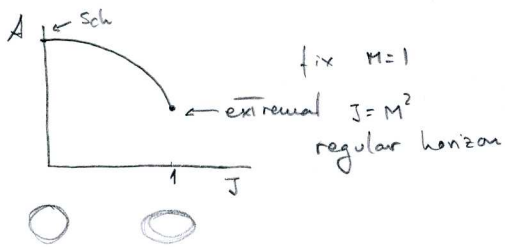 A ← Sch
fix M=1
← extremal J=M²
regular horizon
1
J